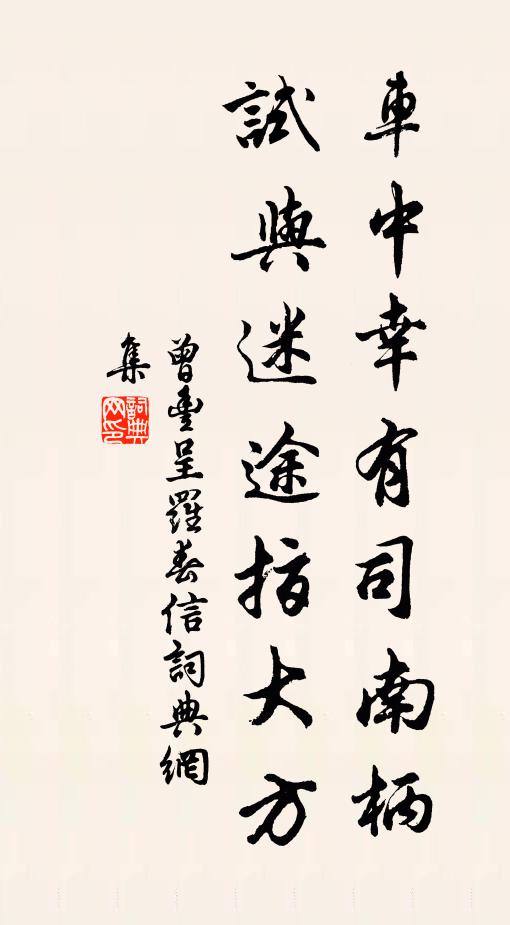 車中幸有司南柄
試與迷途指大方
曾豐呈羅春信詞典網
集
詞典網印